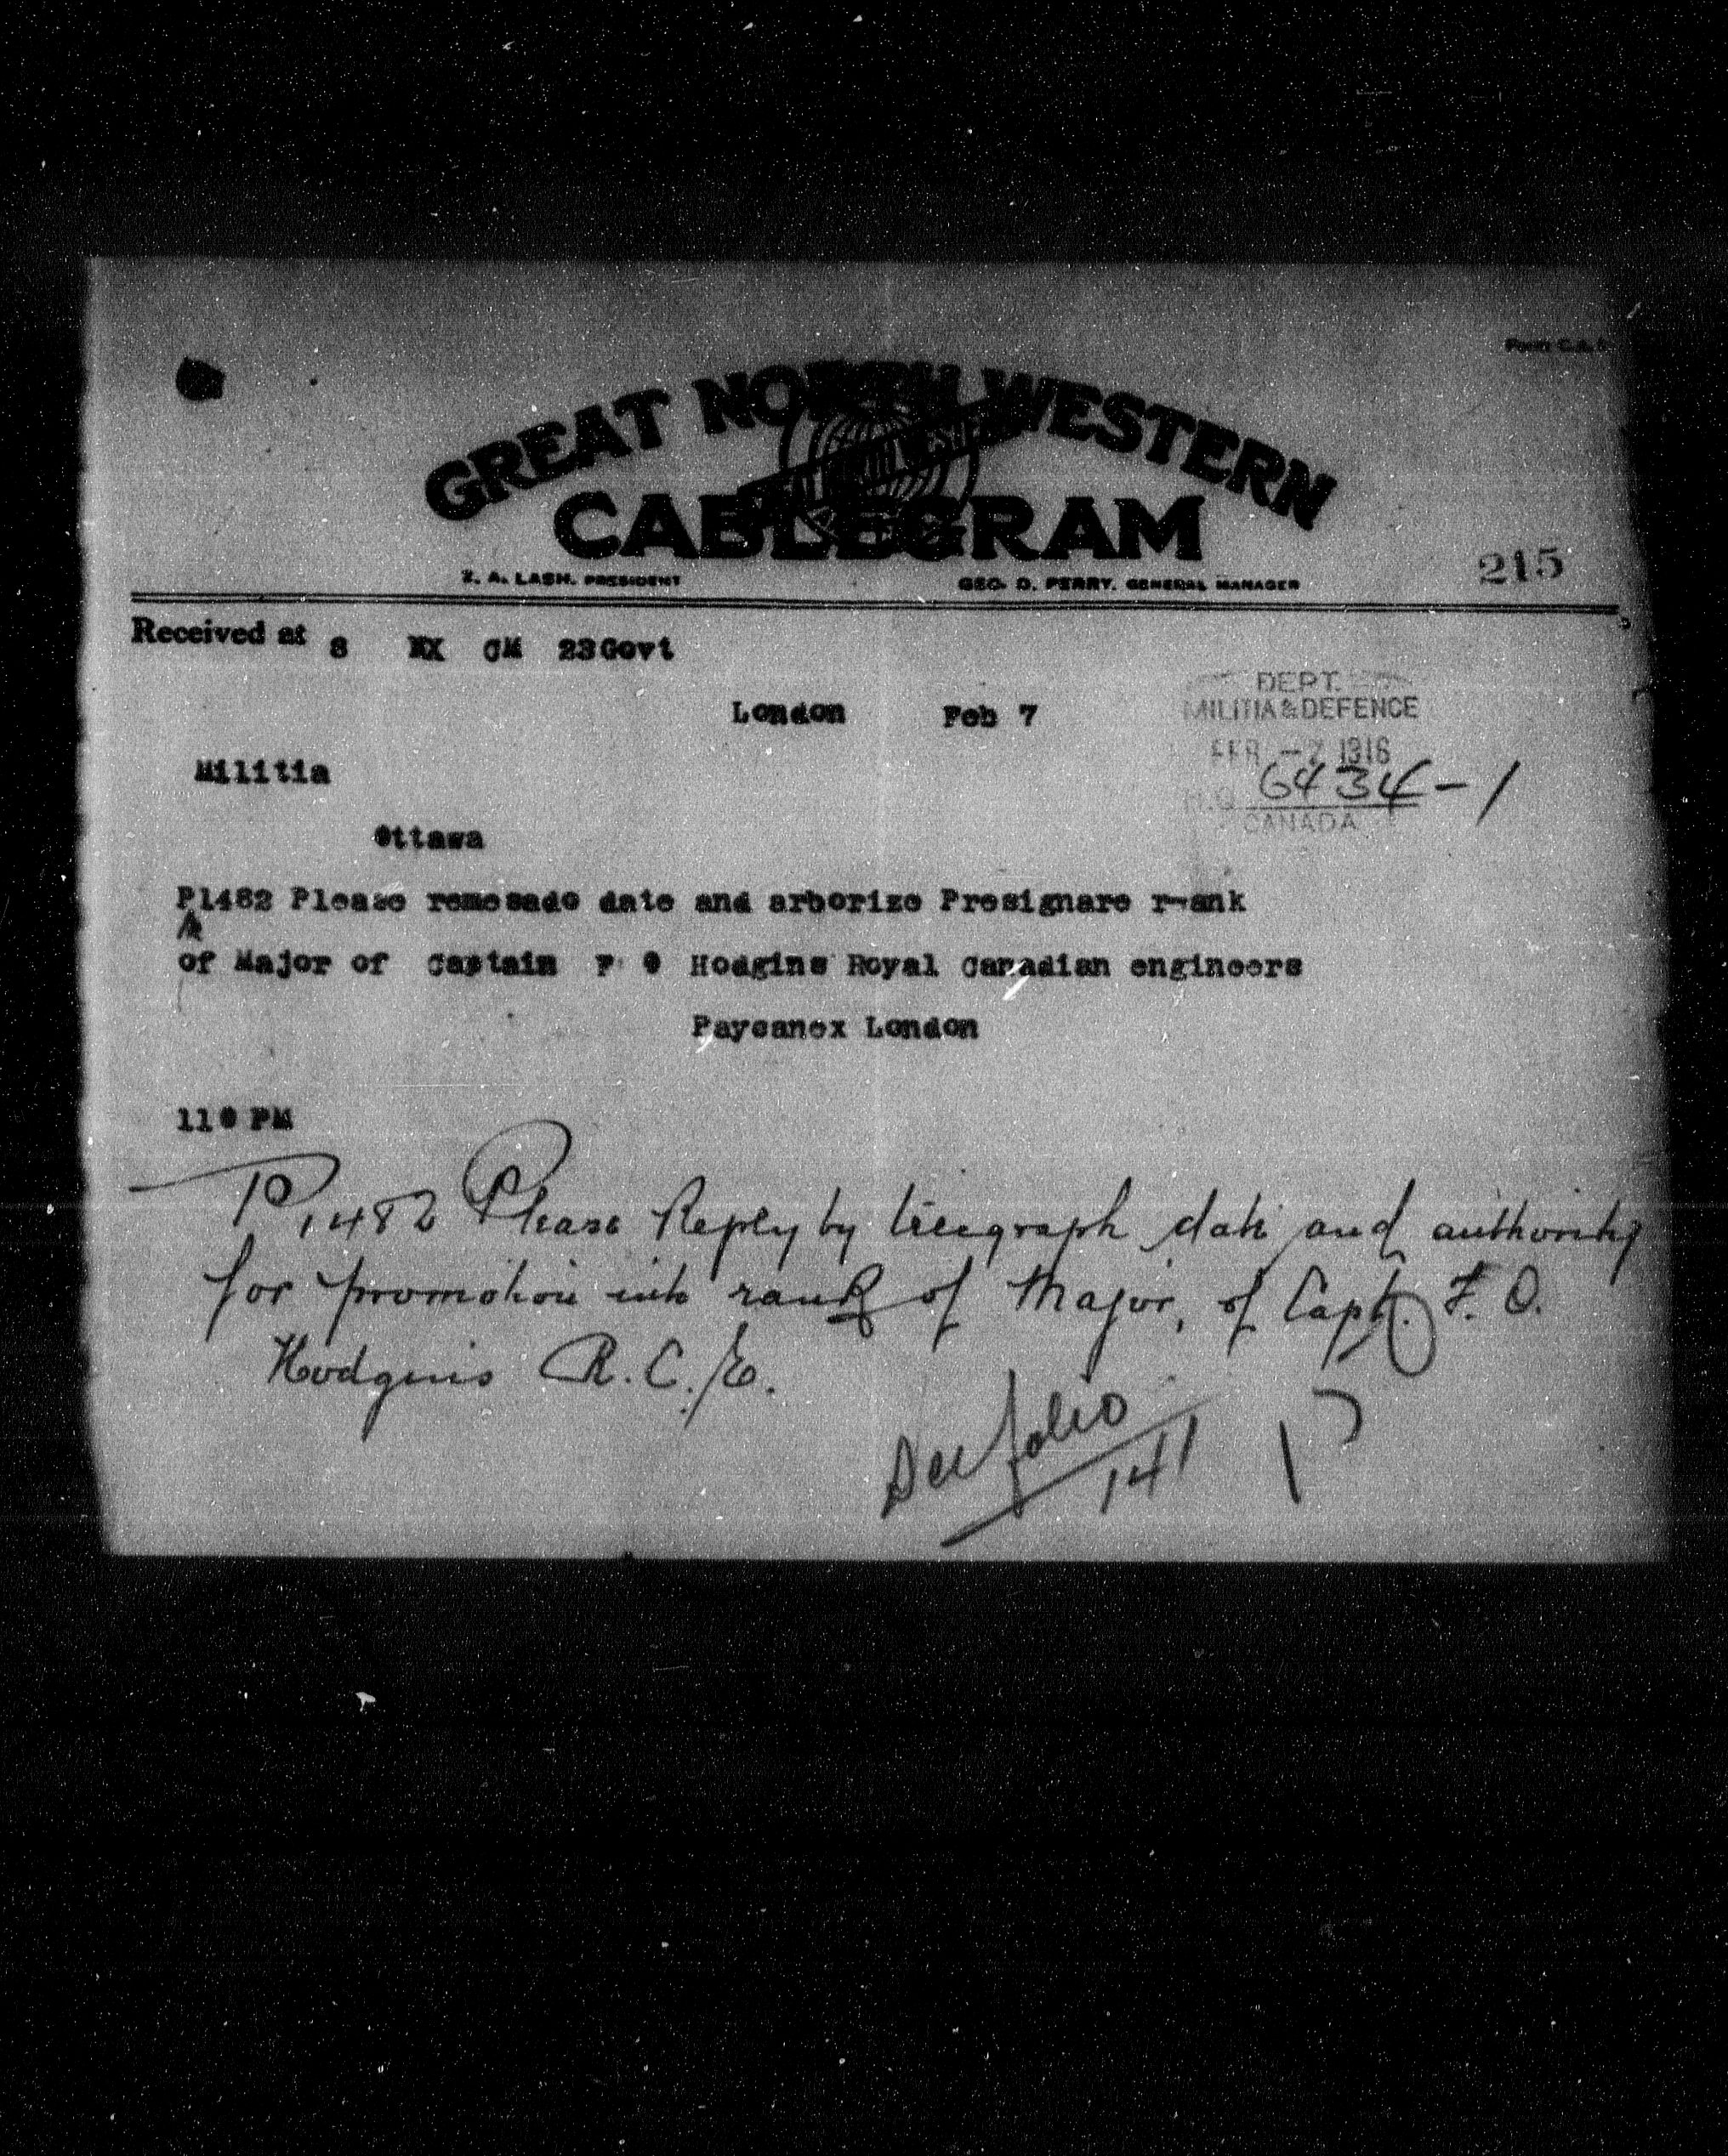 Form C.A.
GREAT NORTH WESTERN
CABLEGRAM
Z. A. LASH, PRESIDENT GEO. D. PERRY, GENERAL MANAGER
215
Received at 8 NX GM 23Govt
London Feb 7
DEPT.
MILITIA & DEFENCE
FEB -7 1916
H.Q. 6434-1
CANADA
Militia
Ottawa
P1482 Please remesade date and arborize Presignare r-ank
of Major of Captain F O Hodgins Royal Canadian engineers
Paycanex London
110 PM
P1482 Please Reply by telegraph date and authority
for promotion into rank of Major, of Capt. F. O.
Hodgins R.C.E.
See folio
141